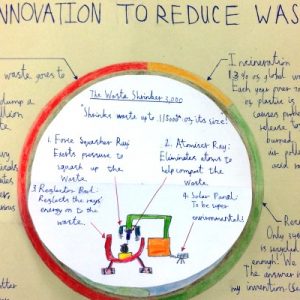 NNOVATION TO REDUCE WAS
The Waste Shrinker 3,000
"Shrinks waste up to 1/5000th of its size!"
1. Force Squasher Ray:
Exerts pressure to
squash up the
Waste.
2. Atomiser Ray:
Eliminates atoms to
help compact the
Waste.
3. Reflector Bed:
Reflects the rays'
energy on to the
waste.
4. Solar Panel:
To be super
environmental!
waste goes to
dump a
Incineration
1.3% of global w
Each year over
of plastic is
causes
release
burned
as
poll
Re
Only
is recycled
enough! We
The answer
my invention (se